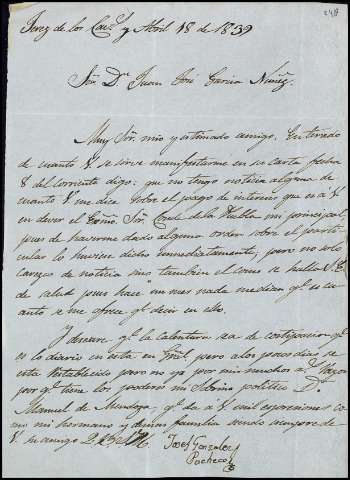 Jerez de los Cav.s y Abril 18 de 1839
248
Sñr D.n Juan José Garcia Nuñez.
Muy Sñr. mio y estimado amigo. Enterado
de cuanto V. se sirve manifestarme en su carta fecha
8 del corriente digo: que no tengo noticia alguna de
cuanto V. me dice sobre el pago de intereses que es á V.
en dever el Exmo. Sñr. Conde de la Puebla mi principal,
pues de haverme dado alguna orden sobre el parti-
cular lo huviere dicho inmediatamente; pero no solo
carezco de noticia sino tambien el como se halla S. E.
de salud pues hace un mes nada me dicen q.e es cu-
anto se me ofrece q.e decir en ello.
q.e la calentura sea de q.e
es lo diario en esta en pero a los pocos dias se
esta restablecido para no ya por mis muchos a.s y razon
por q.e tiene los poderes mi Sobrino politico D.n
Manuel de Mendoza, q.e da á V. mil espresiones co-
mo mi hermano y demas familia siendo siempre de
V. su amigo Q. B. S. M.
Josef Gonzalez
Pacheco